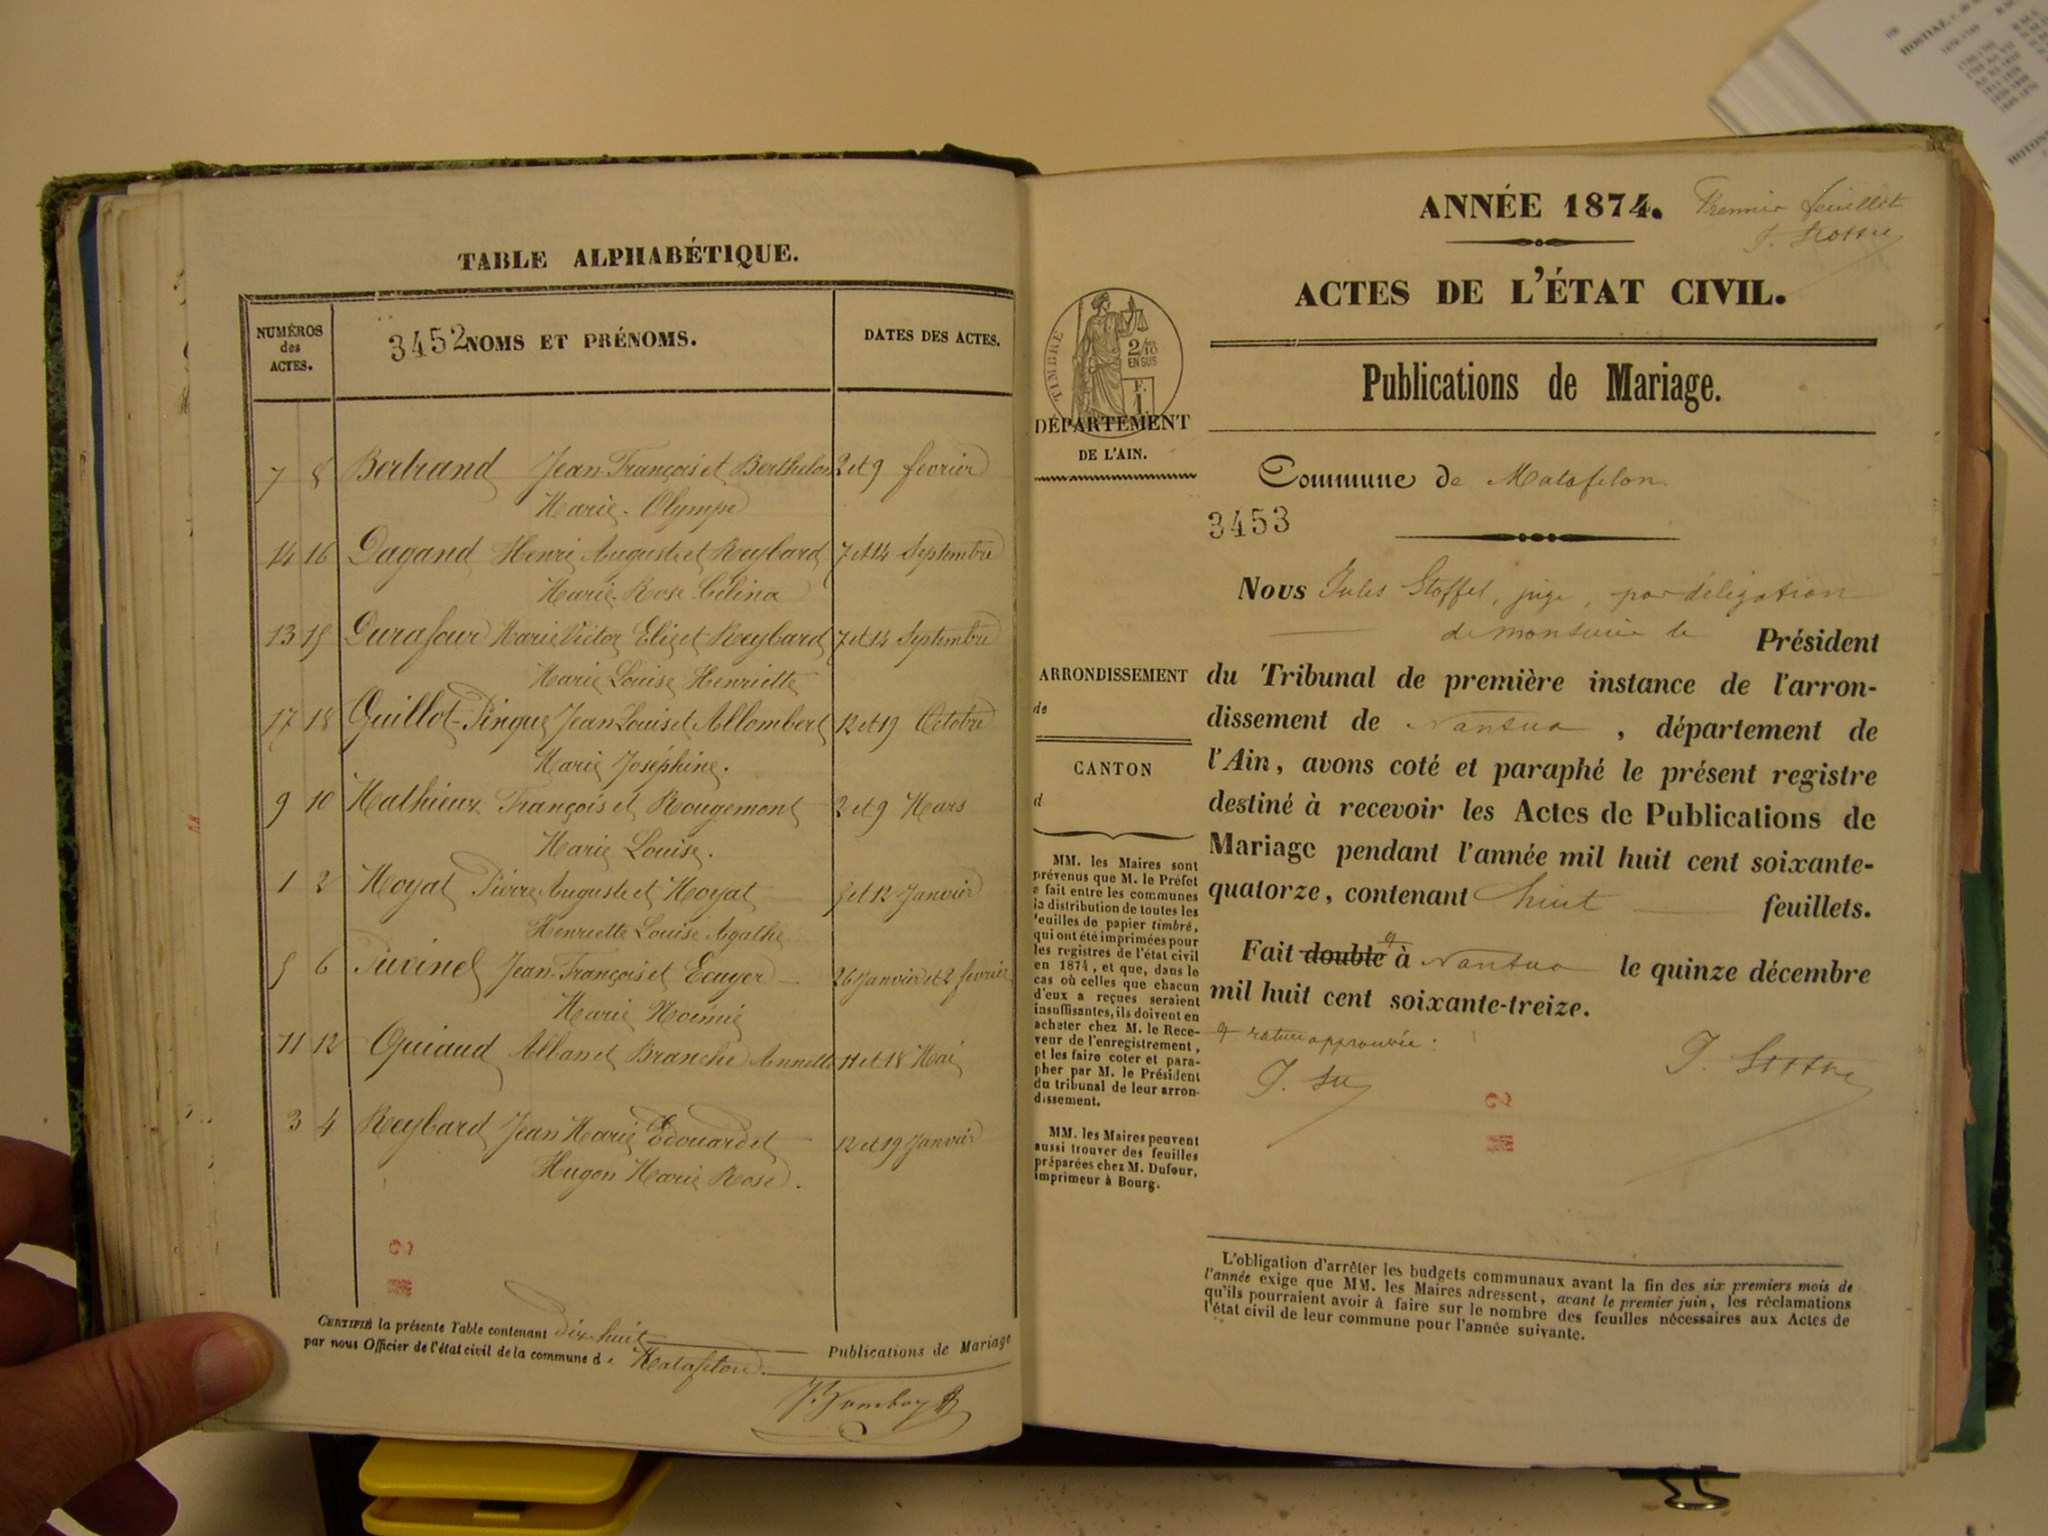 TABLE ALPHABÉTIQUE.
NUMÉROS
des
ACTES.
3452 NOMS ET PRÉNOMS.
DATES DES ACTES.
7 8 Bertrand Jean François et Berthelon 2 et 9 fevrier
Marie Olympe
14 16 Dagand Henri Auguste et Reybard 7 et 14 Septembre
Marie Rose Célina
13 15 Durafour Marie Victor Elie et Reybard 7 et 14 Septembre
Marie Louise Henriette
17 18 Guillot-Pingue Jean Louis et Allombert 12 et 19 Octobre
Marie Joséphine.
9 10 Mathieux François et Rougemont 2 et 9 Mars
Marie Louise.
1 2 Moyat Pierre Auguste et Moyat 5 et 12 Janvier
Henriette Louise Agathe
5 6 Jean François et Ecuyer 26 Janvier et 2 fevrier
Marie Noémie
11 12 Alban et Branche Annette 11 et 18 Mai
3 4 Reybard Jean Marie Edouard et 12 et 19 Janvier
Hugon Marie Rose.
CERTIFIÉ la présente Table contenant dix huit Publications de Mariage
par nous Officier de l'état civil de la commune de Matafelon.
ANNÉE 1874.
Premier feuillet
ACTES DE L'ÉTAT CIVIL.
TIMBRE
2/10
EN SUS
F.
1
DÉPARTEMENT
DE L'AIN.
ARRONDISSEMENT
de
CANTON
d
MM. les Maires sont
prévenus que M. le Préfet
a fait entre les communes
la distribution de toutes les
feuilles de papier timbré,
qui ont été imprimées pour
les registres de l'état civil
en 1874, et que, dans le
cas où celles que chacun
d'eux a reçues seraient
insuffisantes, ils doivent en
acheter chez M. le Rece-
veur de l'enregistrement,
et les faire coter et para-
pher par M. le Président
du tribunal de leur arron-
dissement.
MM. les Maires peuvent
aussi trouver des feuilles
préparées chez M. Dufour,
imprimeur à Bourg.
Publications de Mariage.
Commune de Matafelon
3453
Nous Jules Stoffel, juge, par délégation
de monsieur le Président
du Tribunal de première instance de l'arron-
dissement de Nantua, département de
l'Ain, avons coté et paraphé le présent registre
destiné à recevoir les Actes de Publications de
Mariage pendant l'année mil huit cent soixante-
quatorze, contenant huit feuillets.
Fait double à Nantua le quinze décembre
mil huit cent soixante-treize.
rature approuvée.
L'obligation d'arrêter les budgets communaux avant la fin des six premiers mois de
l'année exige que MM. les Maires adressent, avant le premier juin, les réclamations
qu'ils pourraient avoir à faire sur le nombre des feuilles nécessaires aux Actes de
l'état civil de leur commune pour l'année suivante.